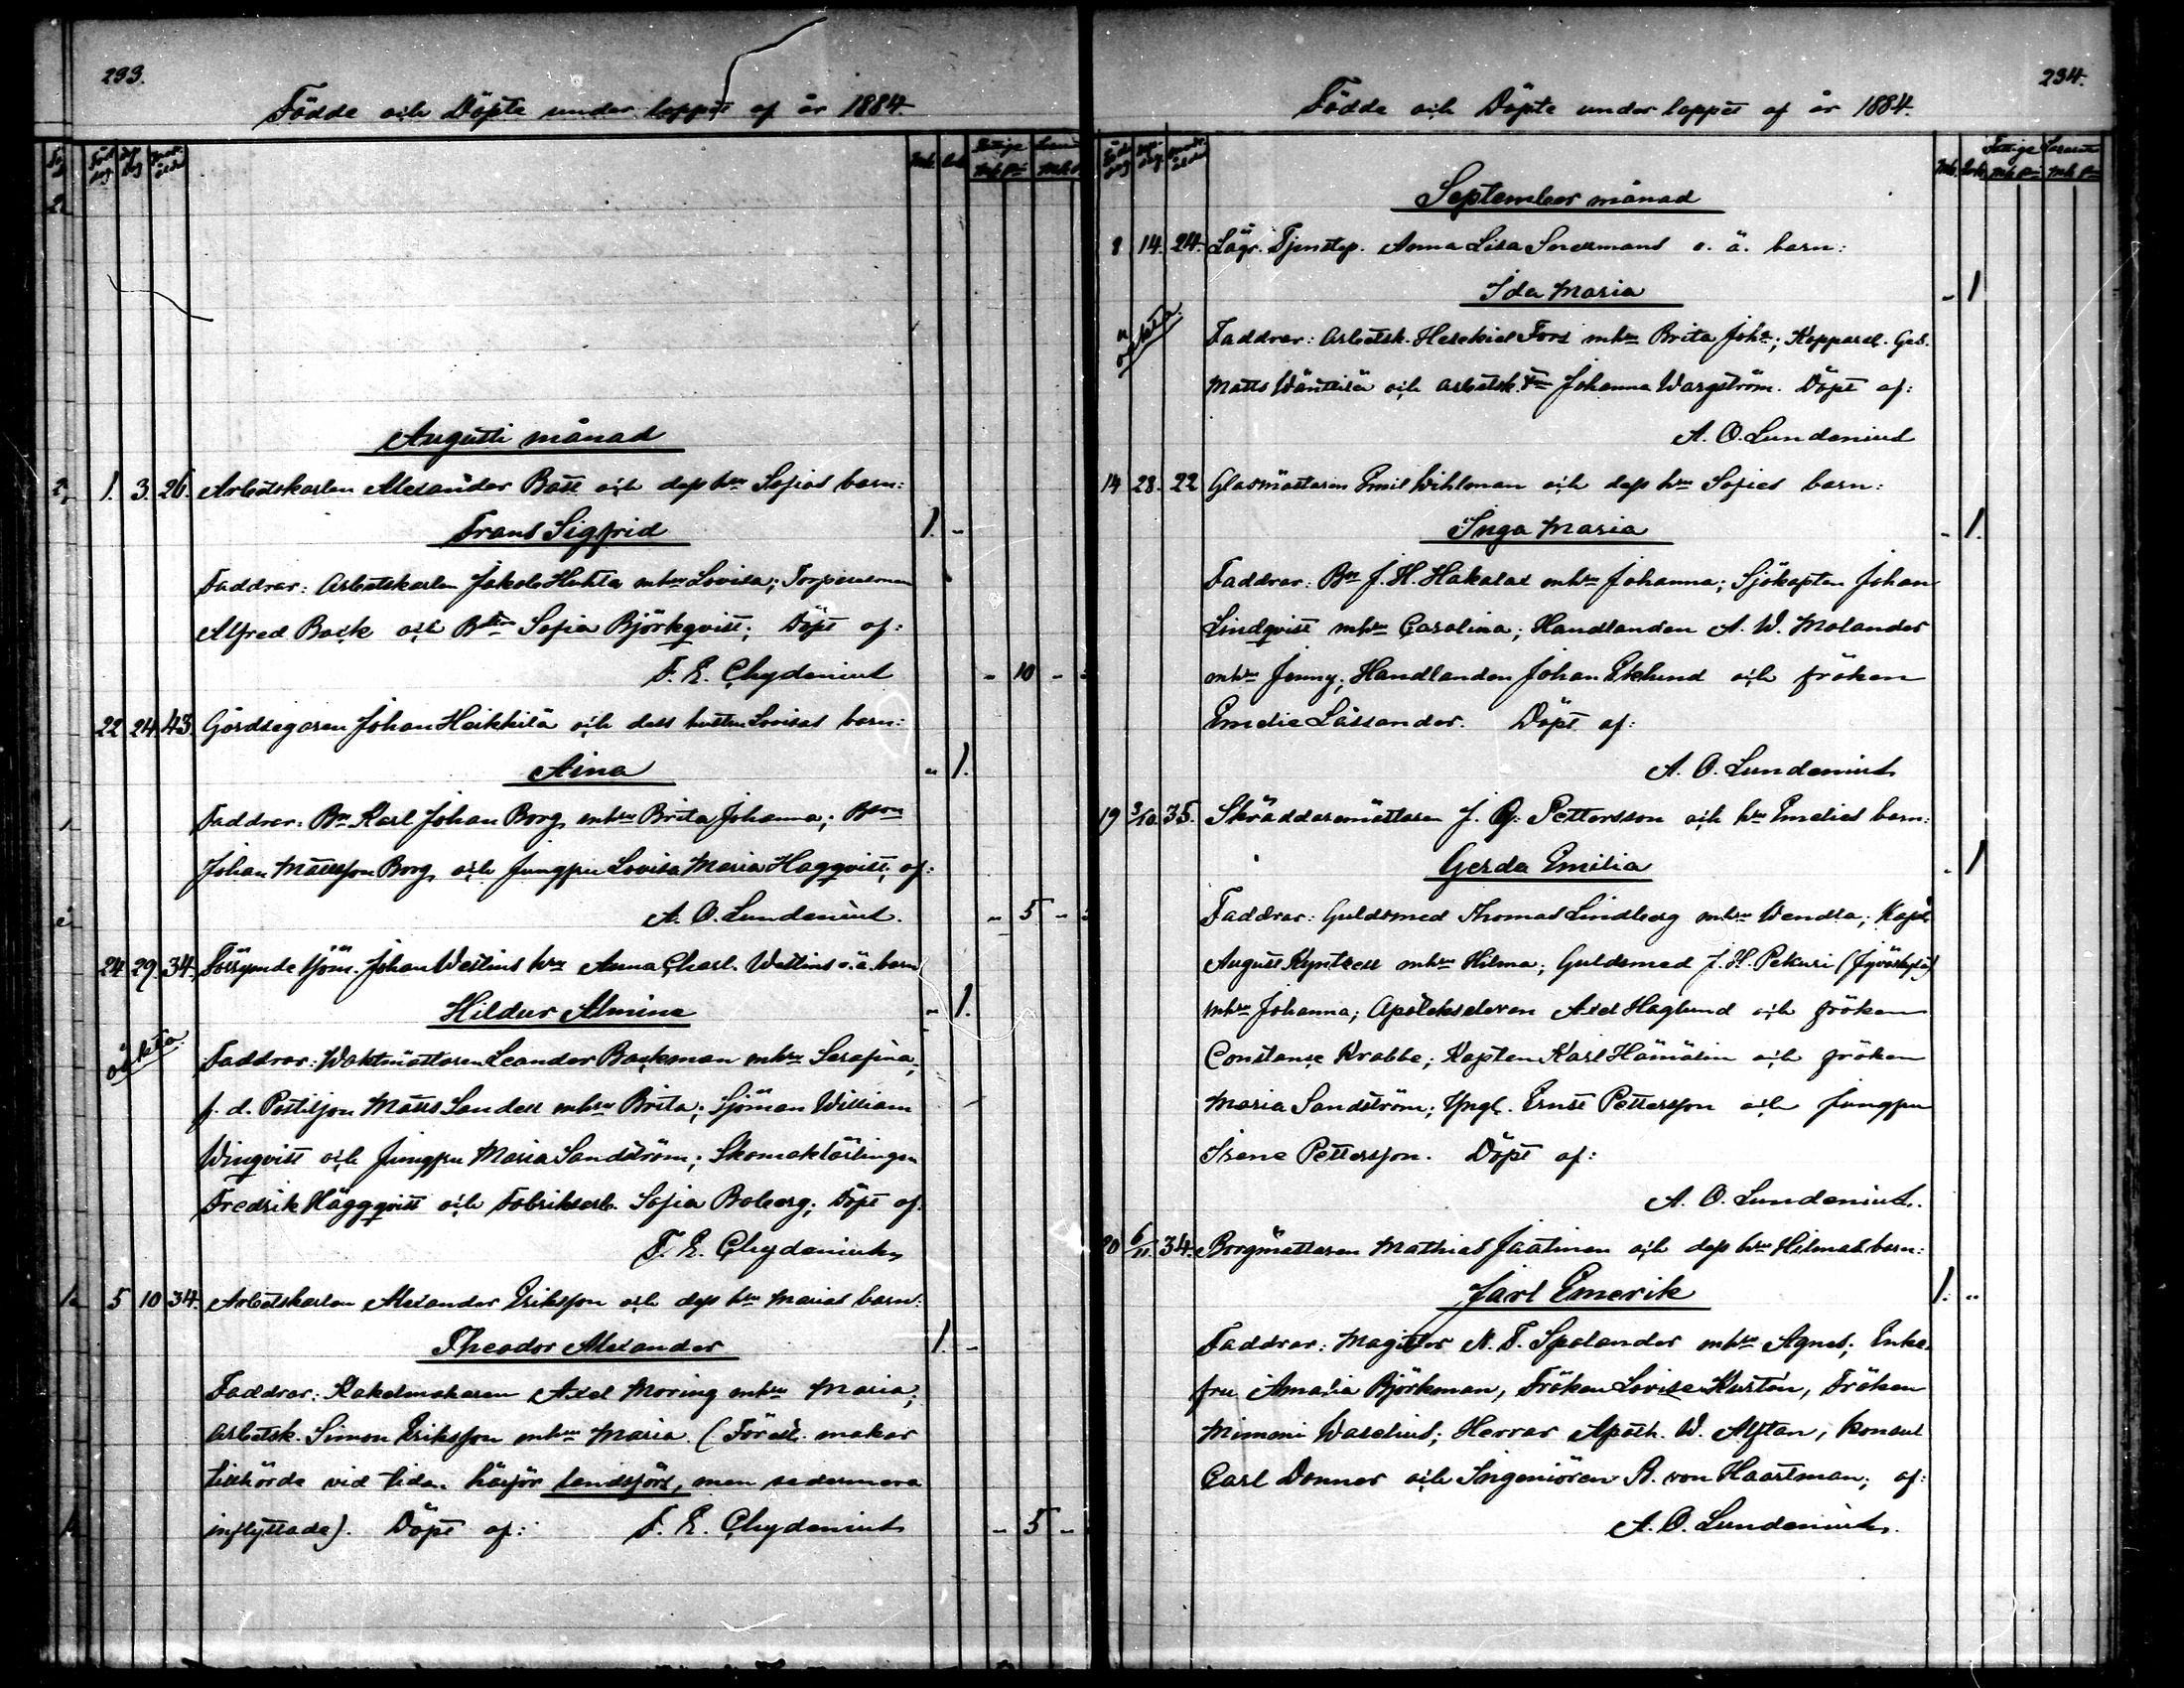 233.
Födde och Döpte under loppet af år 1884.
Född dag Döp. dag Modr. ålder Mk. Qvk. Fattige Lasarett
Mk Pi Mk P
Augusti månad
1. 3. 26. Arbetskarlen Alexander Bast och dess hu Sofias barn:
Frans Sigfrid 1. -
Faddrar: Arbetskarlen Jakob Huhta mhu Lovisa; Torparesonen
Alfred Back och Bdtr Sofia Björkqvist; Döpt af:
F. E. Chydenius - 10 -
22 24 43. Gårdsegaren Johan Heikkilä och dess hustru Lovisas barn:
Aina - 1.
Faddrar: Bn Karl Johan Borg mhu Brita Johanna; Bson
Johan Mattsson Borg och Jungfru Lovisa Maria Hagqvist; af:
A. O. Lundenius. - 5 -
24 29. 34. Förrymde sjöm. Johan Westlins hu Anna Charl. Westlins o. ä. barn
Hildur Almine - 1.
oäkta.
Faddrar: Waktmästaren Leander Backman mhu Serafina;
f. d. Postiljon Matts Sandell mhu Brita; Sjöman William
Winqvist och Jungfru Maria Sandström; Skomaklärlingen
Fredrik Häggqvist och Fabriksarb. Sofia Boberg; Döpt af
F. E. Chydenius
5 10 34. Arbetskarlen Alexander Eriksson och dess hu Marias barn:
Theodor Alexander 1. -
Faddrar: Kakelmakaren Axel Moring mhu Maria;
Arbetsk. Simon Eriksson mhu Maria. (Föräl. makar
tillhörde vid tiden härför landsförs, men sedermera
inflyttade). Döpt af: F. E. Chydenius - 5 -
234.
Födde och Döpte under loppet af år 1884.
Född dag Döp. dag Modr. ålder Mk. Qvk. Fattige Lasarett
Mk Pi Mk Pi
September månad
8 14. 24. Lägr. Tjenstep. Anna Lisa Snellmans o. ä. barn:
Ida Maria - 1
oäkta.
Faddrar: Arbetsk. Hesekiel Fors mhu Brita Joha; Kopparsl. Ges.
Matts Wänttilä och Arbetsk. Johanna Wargström. Döpt af:
A. O. Lundenius
14 28. 22 Glasmästaren Emil Wihlman och dess hu Sofies barn:
Inga Maria - 1.
Faddrar: Bn J. H. Hakalax mhu Johanna; Sjökapten Johan
Lindqvist mhu Carolina; Handlanden A. W. Molander
mhu Jenny; Handlanden Johan Eklund och fröken
Emelie Lassander. Döpt af:
A. O. Lundenius
19 3/10. 35. Skräddaremästaren J. G. Pettersson och hu Emelies barn:
Gerda Emilia - 1
Faddrar: Guldsmed Thomas Lindberg mhu Wendla; Kapt.
August Kyntzell mhu Hilma; Guldsmed J. H. Pekuri (Jyväskylä)
mhu Johanna; Apotekseleven Axel Haglund och fröken
Constance Krabbe; Kapten Karl Hämälin och fröken
Maria Sandström; Yngl. Ernst Pettersson och Jungfru
Irene Pettersson. Döpt af:
A. O. Lundenius.
20 6/11. 34. Borgmästaren Mathias Jaatinen och dess hu Hilmas barn:
Jarl Emerik 1. -
Faddrar: Magister N. F. Spolander mhu Agnes; Enke-
fru Amalia Björkman, Fröken Lovise Kastén, Fröken
Mimmi Waselius; Herrar Apoth. W. Alftan, Konsul
Carl Donner och Ingeniören B. von Haartman; af:
A. O. Lundenius.